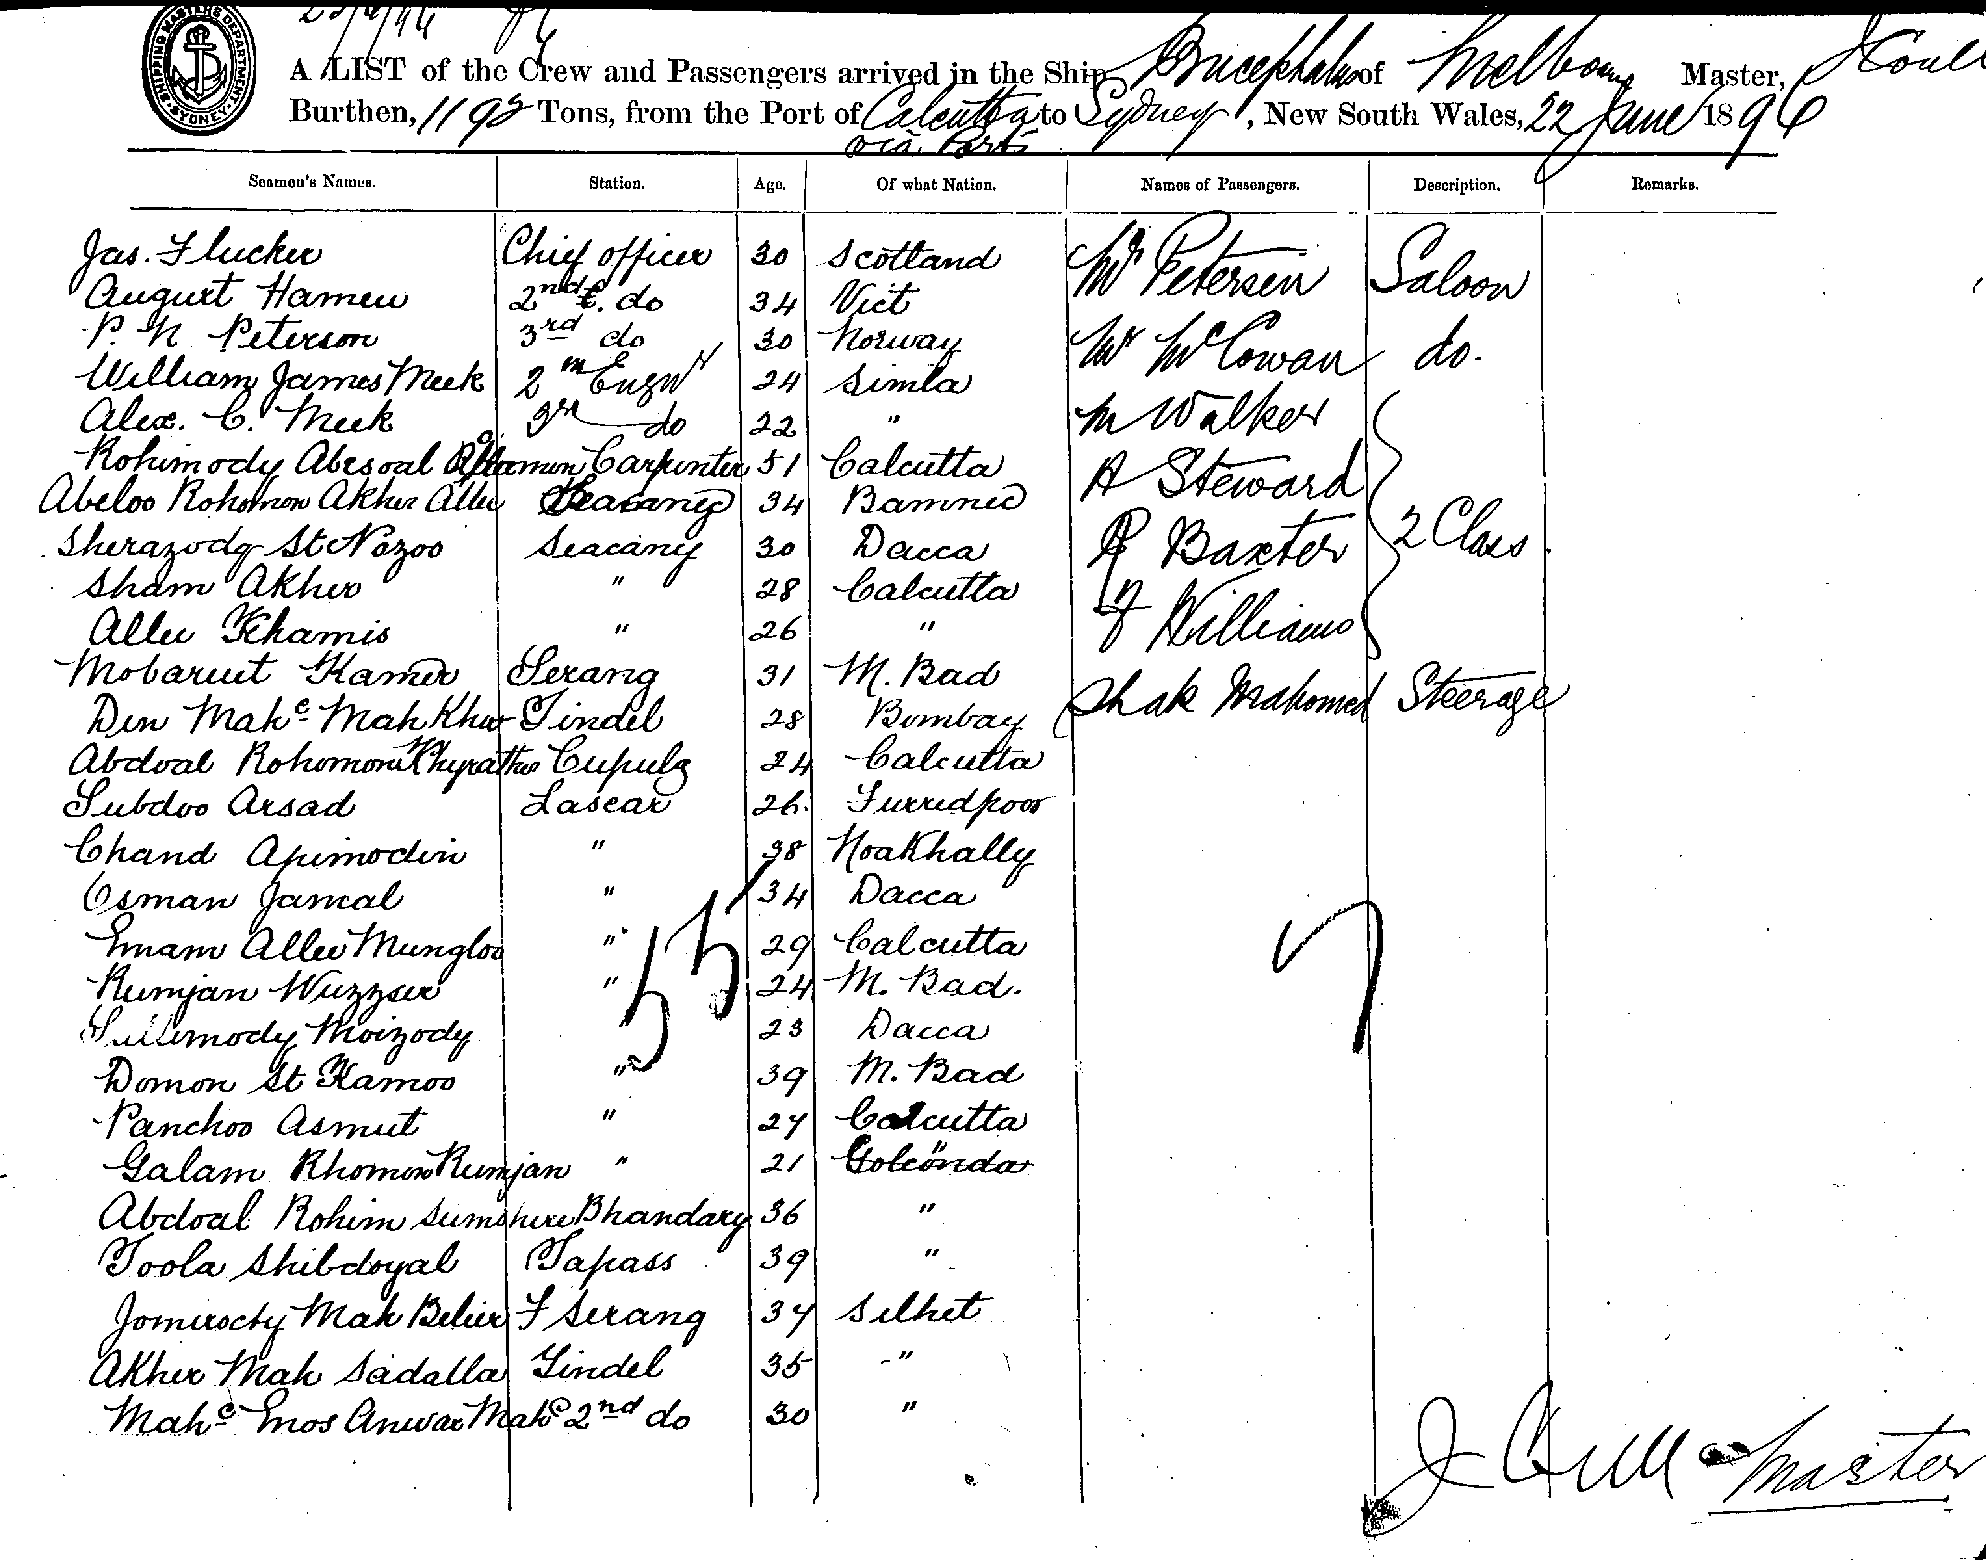 SHIPPING MASTERS DEPARTMENT SYDNEY
A LIST of the Crew and Passengers arrived in the Ship Bucephalus of Melbourne Master, J Coull
Burthen, 1193 Tons, from the Port of Calcutta to Sydney, New South Wales, 22 June 1896
via Ports
Seamen's Names. Station. Age. Of what Nation. Names of Passengers. Description. Remarks.
Jas. Flucker Chief officer 30 Scotland Mr Petersen Saloon
August Hamen 2nd do 34 Vict
P. N Peterson 3rd do 30 Norway Mr McCowan do.
William James Meek 2nd Engnr 24 Simla
Alex. C. Meek 3rd do 22 " M Walker
Rohimody Abesoal Rohomon Carpenter 51 Calcutta A Steward
Abeloo Rohomon Akher Allee Seacany 34 Bamnee
Sherazody St Nozoo Seacany 30 Dacca R Baxter 2 Class
Sham Akher " 28 Calcutta
Allee Khamis " 26 " F Williams
Mobaruct Kamer Serang 31 M. Bad Shak Mahomed Steerage
Din Mahe Mah Kher Tindel 28 Bombay
Abdoal Rohomon Khyrather 24 Calcutta
Subdoo Arsad Lascar 26 Furridpoor
Chand Apimodin " 38 Noakhally
Osman Jamal " 34 Dacca
Emam Allee Mungloo " 29 Calcutta
55 7
Rumjan Wuzzeer " 24 M. Bad.
Sullimody Moizody " 23 Dacca
Domon St Kamoo " 39 M. Bad
Panchoo Asmut " 27 Calcutta
Galam Rhomon Rumjan " 21 "
Abdoal Rohim Sumshere Bhandary 36 "
Toola Shibdoyal Tapass 39 "
Jomirocty Mah Belier F Serang 37 Silhet
Akher Mah Sadalla Tindel 35 "
Mahe Enos Anwar Mahe 2nd do 30 "
J Coull Master